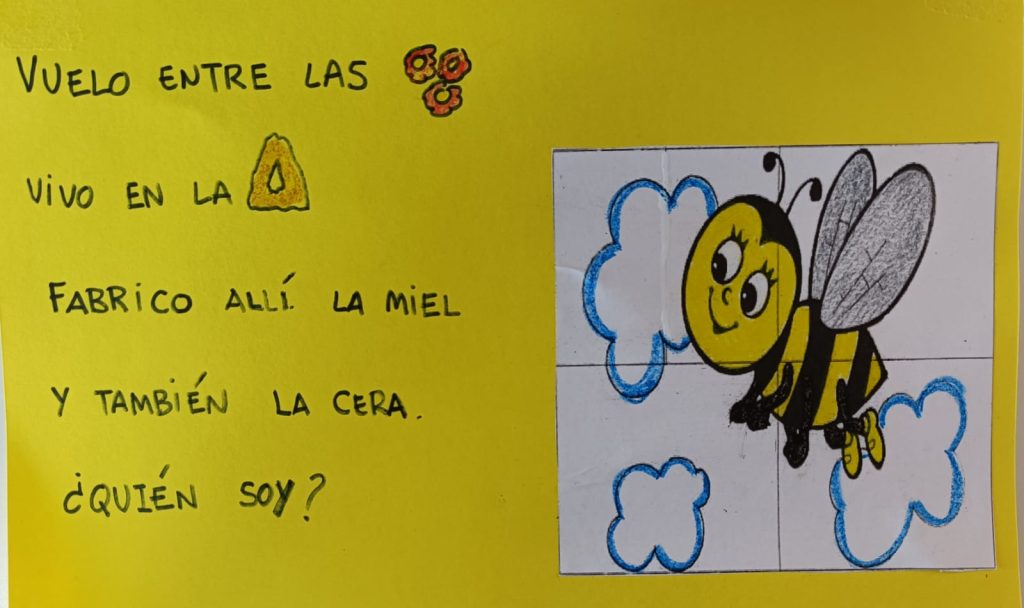 VUELO ENTRE LAS
VIVO EN LA
FABRICO ALLÍ LA MIEL
Y TAMBIÉN LA CERA.
¿QUIÉN SOY?